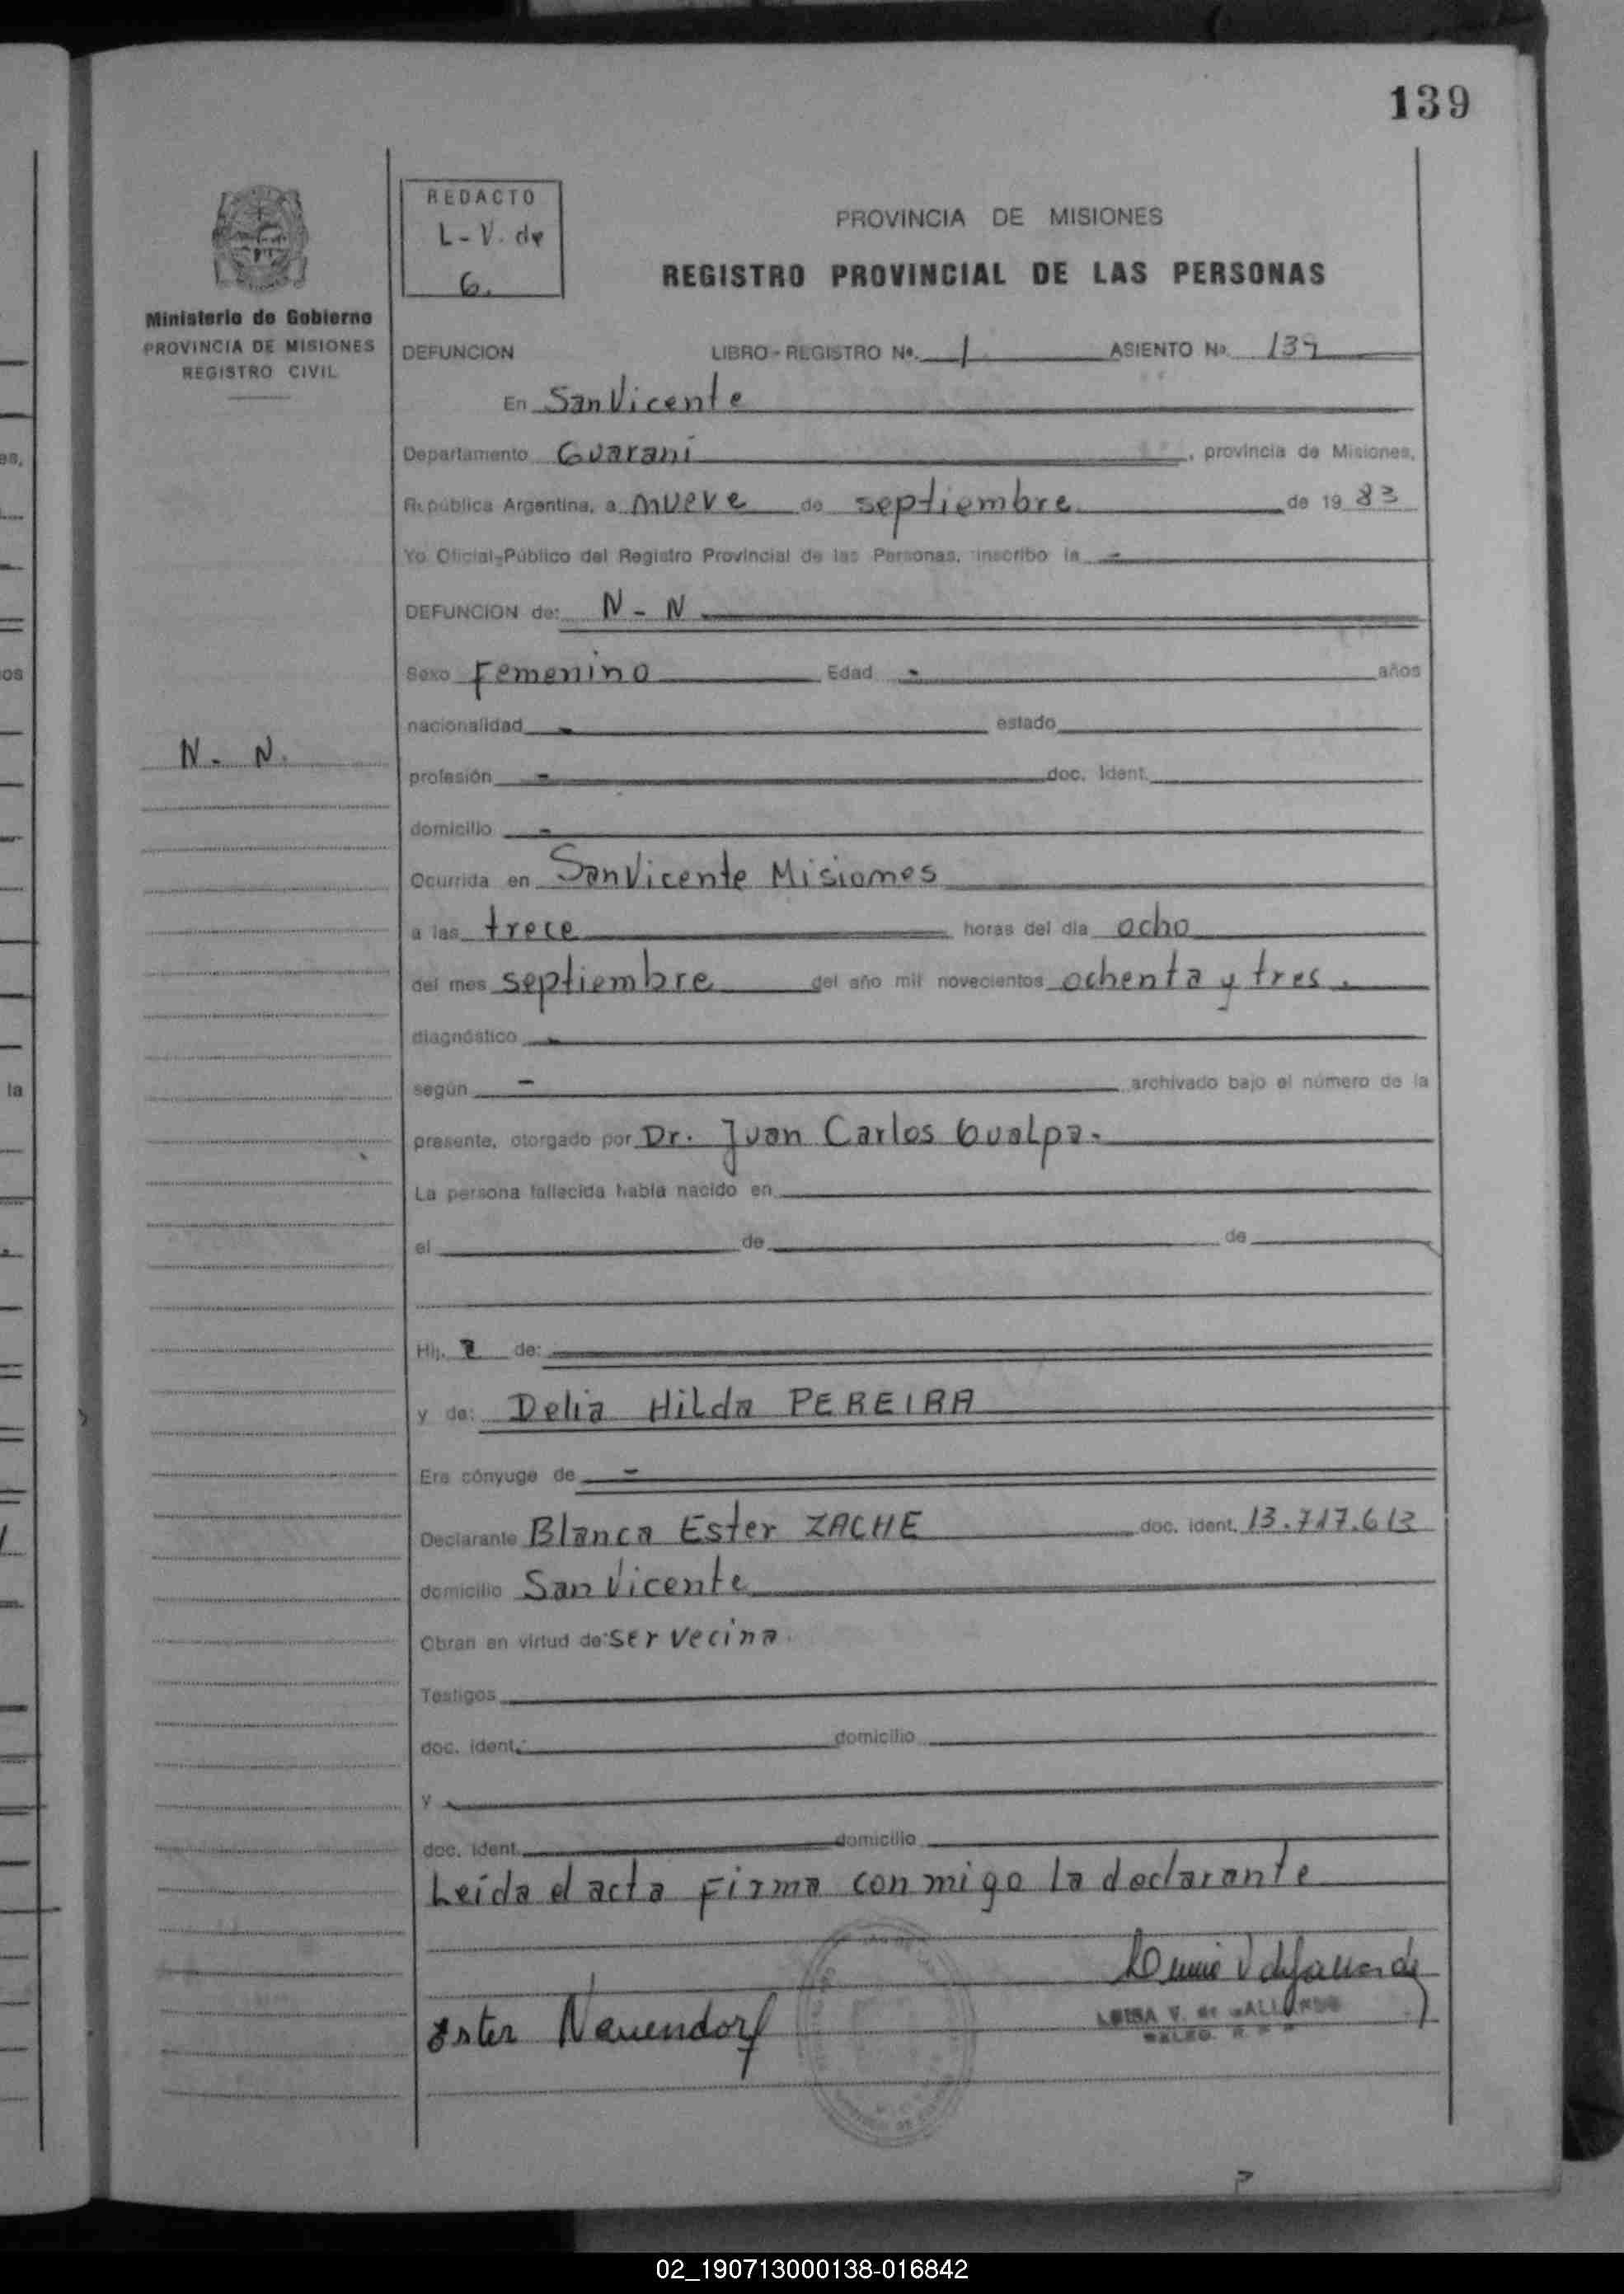 139
REDACTO
L-V. de
G.
PROVINCIA DE MISIONES
REGISTRO PROVINCIAL DE LAS PERSONAS
Ministerio de Gobierno
PROVINCIA DE MISIONES
REGISTRO CIVIL
DEFUNCION LIBRO-REGISTRO Nº. 1 ASIENTO Nº. 139
En San Vicente
Departamento Guaraní, provincia de Misiones,
República Argentina, a nueve de septiembre de 19 83
Yo Oficial-Público del Registro Provincial de las Personas, inscribo la -
DEFUNCION de: N - N
Sexo Femenino Edad - años
nacionalidad - estado
N. N.
profesión - doc. Ident.
domicilio -
Ocurrida en San Vicente Misiones
a las trece horas del día ocho
del mes septiembre del año mil novecientos ochenta y tres.
diagnóstico -
según - archivado bajo el número de la
presente, otorgado por Dr. Juan Carlos Gualpa.
La persona fallecida había nacido en
el de de
Hij. a de:
y de: Delia Hilda PEREIRA
Era cónyuge de -
Declarante Blanca Ester ZACHE doc. ident. 13.717.613
domicilio San Vicente
Obran en virtud de ser vecina.
Testigos
doc. ident. domicilio
y
doc. ident. domicilio
Leída el acta firma conmigo la declarante
Ester Neuendorf
LUISA V. de GALLARDO
02_190713000138-016842